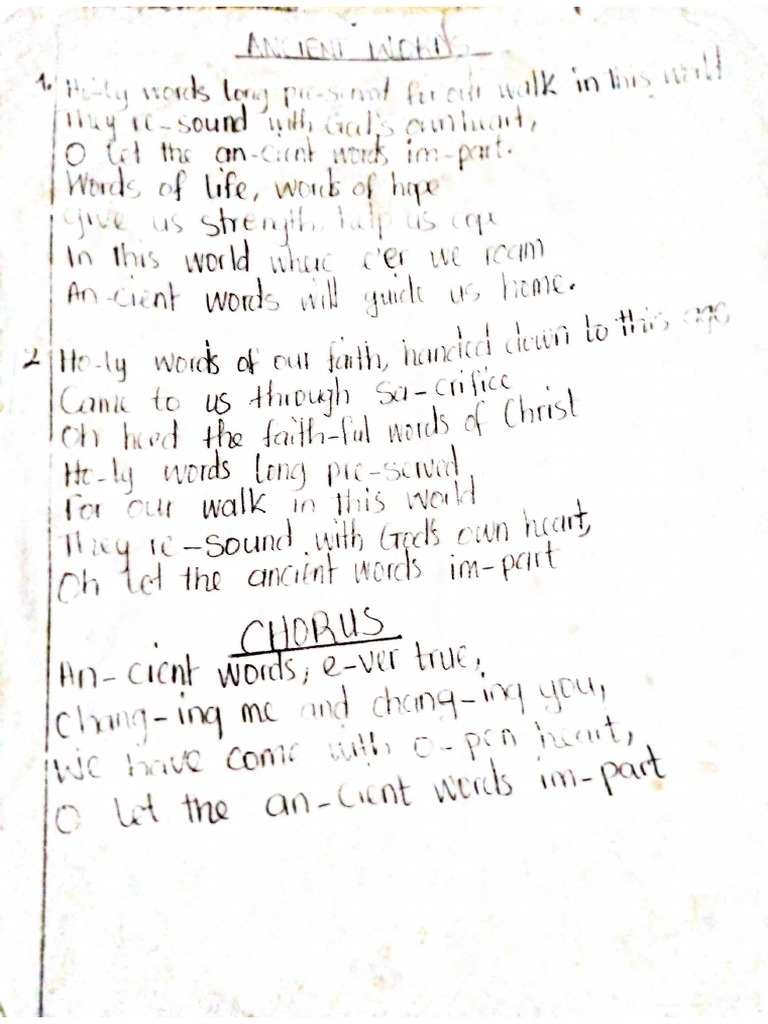 ANCIENT WORDS
1. Ho-ly words long pre-served for our walk in this world
They re-sound with God's own heart,
O let the an-cient words im-part.
Words of life, words of hope
Give us strength, help us cope
In this world where e'er we roam
An-cient words will guide us home.
2 Ho-ly words of our faith, handed down to this age
Came to us through Sa-crifice
Oh heed the faith-ful words of Christ
Ho-ly words long pre-served
For our walk in this world
They re-sound with God's own heart,
Oh let the ancient words im-part
CHORUS
An-cient words, e-ver true,
Chang-ing me and chang-ing you,
We have come with o-pen heart,
O let the an-cient words im-part